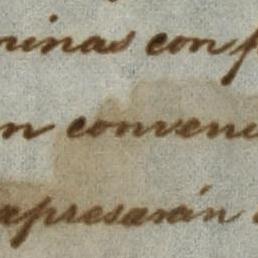 minas con p
n conveni
apresarán